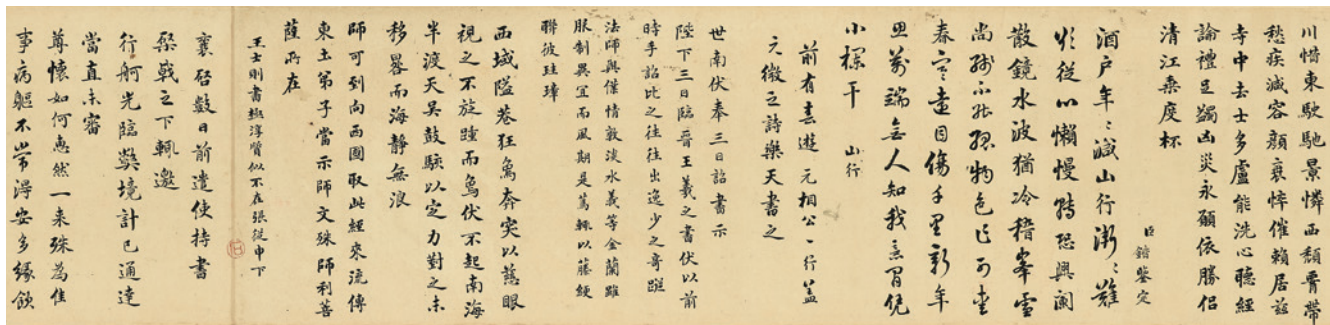 川惜東駛馳景憐西頹胥帶
愁疾減容顏衰悴催賴居茲
寺中去士多盧能洗心聽經
論禮足蠲凶災永願依勝侶
清江乘度杯
臣鍇鑒定
酒戶年〻減山行漸〻難
欲從心懶慢轉恐興闌
散鏡水波猶冷稽峯雪
尚殘不能孤物色乍可愛
春寒遠目傷千里新年
思萬端無人知我意閑凭
小欄干　山行
前有春遊元相公一行蓋
元微之詩樂天書之
世南伏奉三日詔書示
陛下三日臨晉王羲之書伏以前
時手詔比之往往出逸少之奇蹤
法師與僕情敦淡水義等金蘭雖
服制異宜而風期是篤輒以藤綬
聯彼珪璋
西域隘巷狂象奔突以慈眼
視之不旋踵而象伏不起南海
半渡天吳鼓駭以定力對之未
移晷而海靜無浪
師可到向西國取此經來流傳
東土弟子當示師文殊師利菩
薩所在
王士則書極淳質似不在張從申下
襄啓數日前遣使持書
棨戟之下輒邀
行舸光臨弊境計已通達
當直未審
尊懷如何惠然一來殊為佳
事病軀不常得安多緣飲